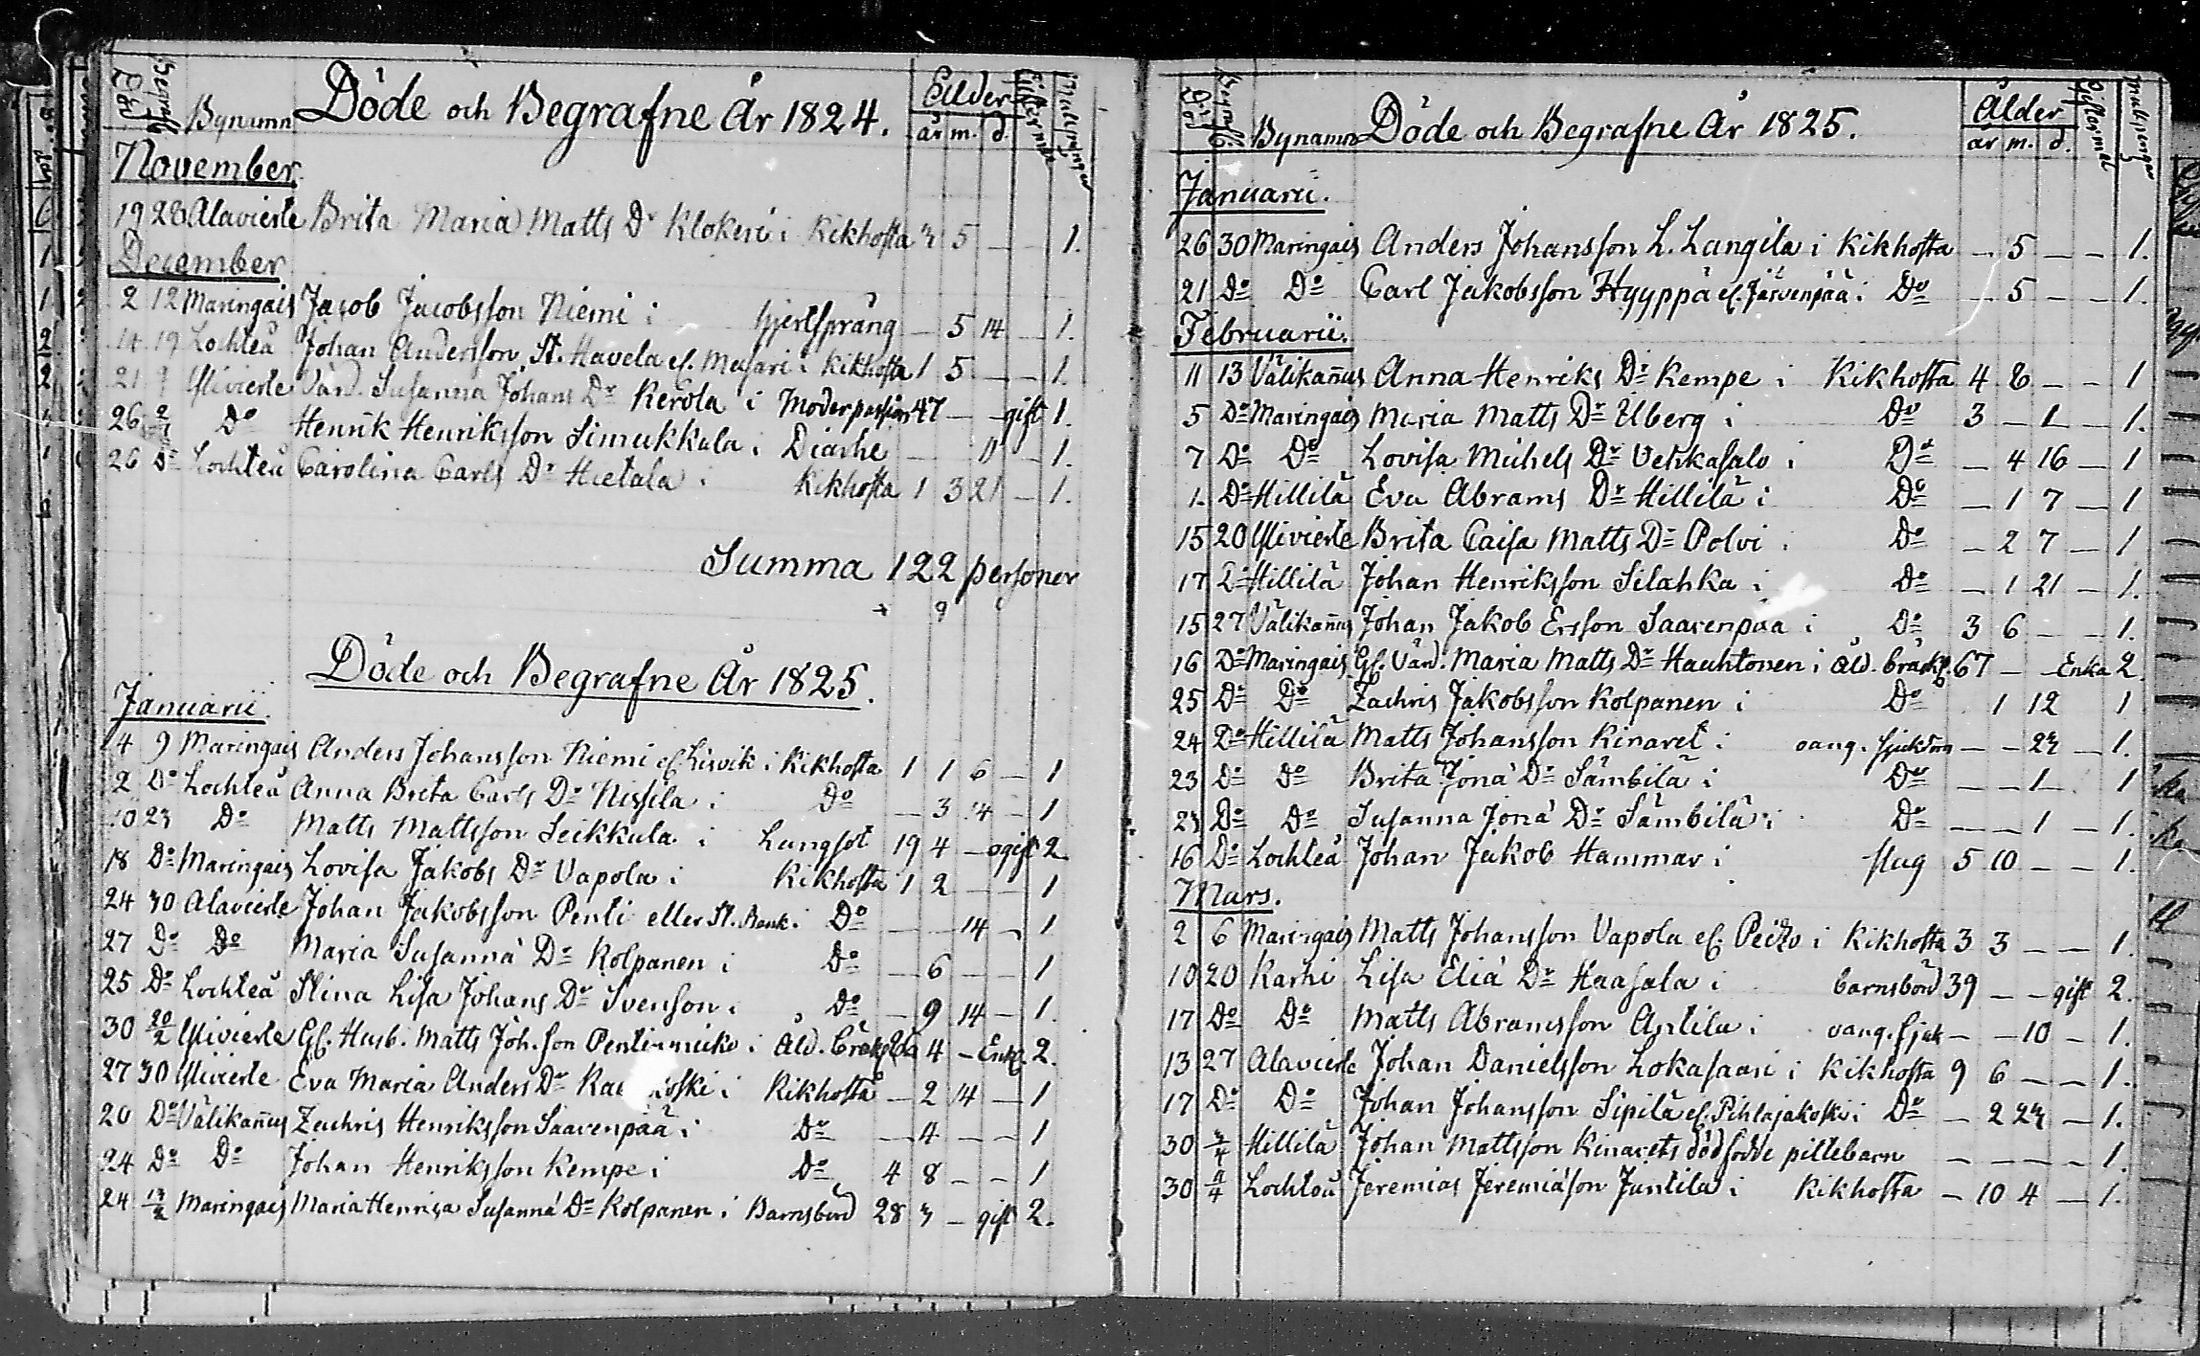 Död Begrafne Bynamn Döde och Begrafne År 1824. Ålder
år m. d.
November
19 28 Alavierle Brita Maria Matts Dr Klokeri i Kikhosta 3 5 — — 1.
December
2 12 Maringais Jacob Jacobsson Niemi i hjertsprång — 5 14 — 1.
14 19 Lochteå Johan Andersson St. Havela ef. Musari i Kikhosta 1 5 — — 1.
21 9 Ylivierle Värd. Susanna Johans Dr Kerola i Moderpassion 47 — — gift 1.
26 Do Henrik Henriksson Simukkala i Diarhe — 11 — 1.
26 Do Lochteå Carolina Carls Dr Hietala i Kikhosta 1 3 21 — 1.
Summa 122 personer
Döde och Begrafne År 1825.
Januarii
4 9 Maringais Anders Johansson Niemi ef. Lisvik i Kikhosta 1 1 6 — 1
2 Do Lochteå Anna Brita Carls Dr Nissila i Do — 3 14 — 1
10 23 Do Matts Mattsson Leikkula i Lungsot 19 4 — ogift 2
18 Do Maringais Lovisa Jakobs Dr Vapola i Kikhosta 1 2 — — 1
24 30 Alavierle Johan Jakobsson Penti eller St. Rank. i Do — — 14 — 1
27 Do Do Maria Susannä Dr Kolpanen i Do — 6 — — 1
25 Do Lochteå Stina Lisa Johans Dr Svenson i Do — 9 14 — 1.
30 20/2 Ylivierle Gf. Husb. Matts Joh.son i Åld. bräckl. 4 — Enkl. 2.
27 30 Ylivierle Eva Maria Anders Dr i Kikhosta — 2 14 — 1
20 Do Välikan̄us Zachris Henriksson Saarenpää i Do — 4 — — 1
24 Do Do Johan Henriksson Kempe i Do 4 8 — — 1
24 13/2 Maringais Maria Henrica Susannä Dr Kolpanen i Barnsbörd 28 3 — gift 2.
Död Begrafne Bynamn Döde och Begrafne År 1825. Ålder Giftermål
år m. d.
Januarii.
26 30 Maringais Anders Johansson L. Lungila i Kikhosta — 5 — — 1.
21 Do Do Carl Jakobsson Hyyppä ef. Järvenpää i Do — 5 — — 1.
Februarii.
11 13 Välikan̄us Anna Henriks Dr Kempe i Kikhosta 4 8 — — 1
5 Do Maringais Maria Matts Dr Ulberg i Do 3 — 1 — 1.
7 Do Do Lovisa Michels Dr Vehkasalo i Do — 4 16 — 1
1. Do Hillilä Eva Abrams Dr Hillilä i Do — 1 7 — 1
15 20 Ylivierle Brita Caisa Matts Dr Polvi i Do — 2 7 — 1
17 Do Hillilä Johan Henriksson Silahka i Do — 1 21 — 1.
15 27 Välikan̄us Johan Jakob Ersson Saarenpää i Do 3 6 — — 1.
16 Do Maringais Gf. Värd. Maria Matts Dr Hauhtonen i Åld. bräckl. 67 — — Enka 2.
25 Do Do Zachris Jakobsson Kolpanen i Do 1 12 1
24 Do Hillilä Matts Johansson Kinaret i oang. sjukdom — — 23 — 1.
23 Do Do Brita Jonä Dr Sämbilä i Do — — 1 1
23 Do Do Susanna Jonä Dr Sämbilä i Do — — 1 — 1.
16 Do Lochteå Johan Jakob Hammar i slag 5 10 — — 1.
Mars.
2 6 Maringais Matts Johansson Vapola ef. Peitzo i Kikhosta 3 3 — — 1.
10 20 Karhi Lisa Eliä Dr Haasala i barnsbörd 39 — — gift 2.
17 Do Do Matts Abramsson Antila i oang. sjuk — — 10 — 1.
13 27 Alavierle Johan Danielsson Lokasaari i Kikhosta 9 6 — — 1.
17 Do Do Johan Johansson Sipilä ef. Pihlajakoski i Do — 2 23 — 1.
30 3/4 Hillilä Johan Mattsson Kinarets dödfödde pillebarn — — — — 1.
30 Lochteå Jeremias Jeremiäson Juntila i Kikhosta — 10 4 — 1.